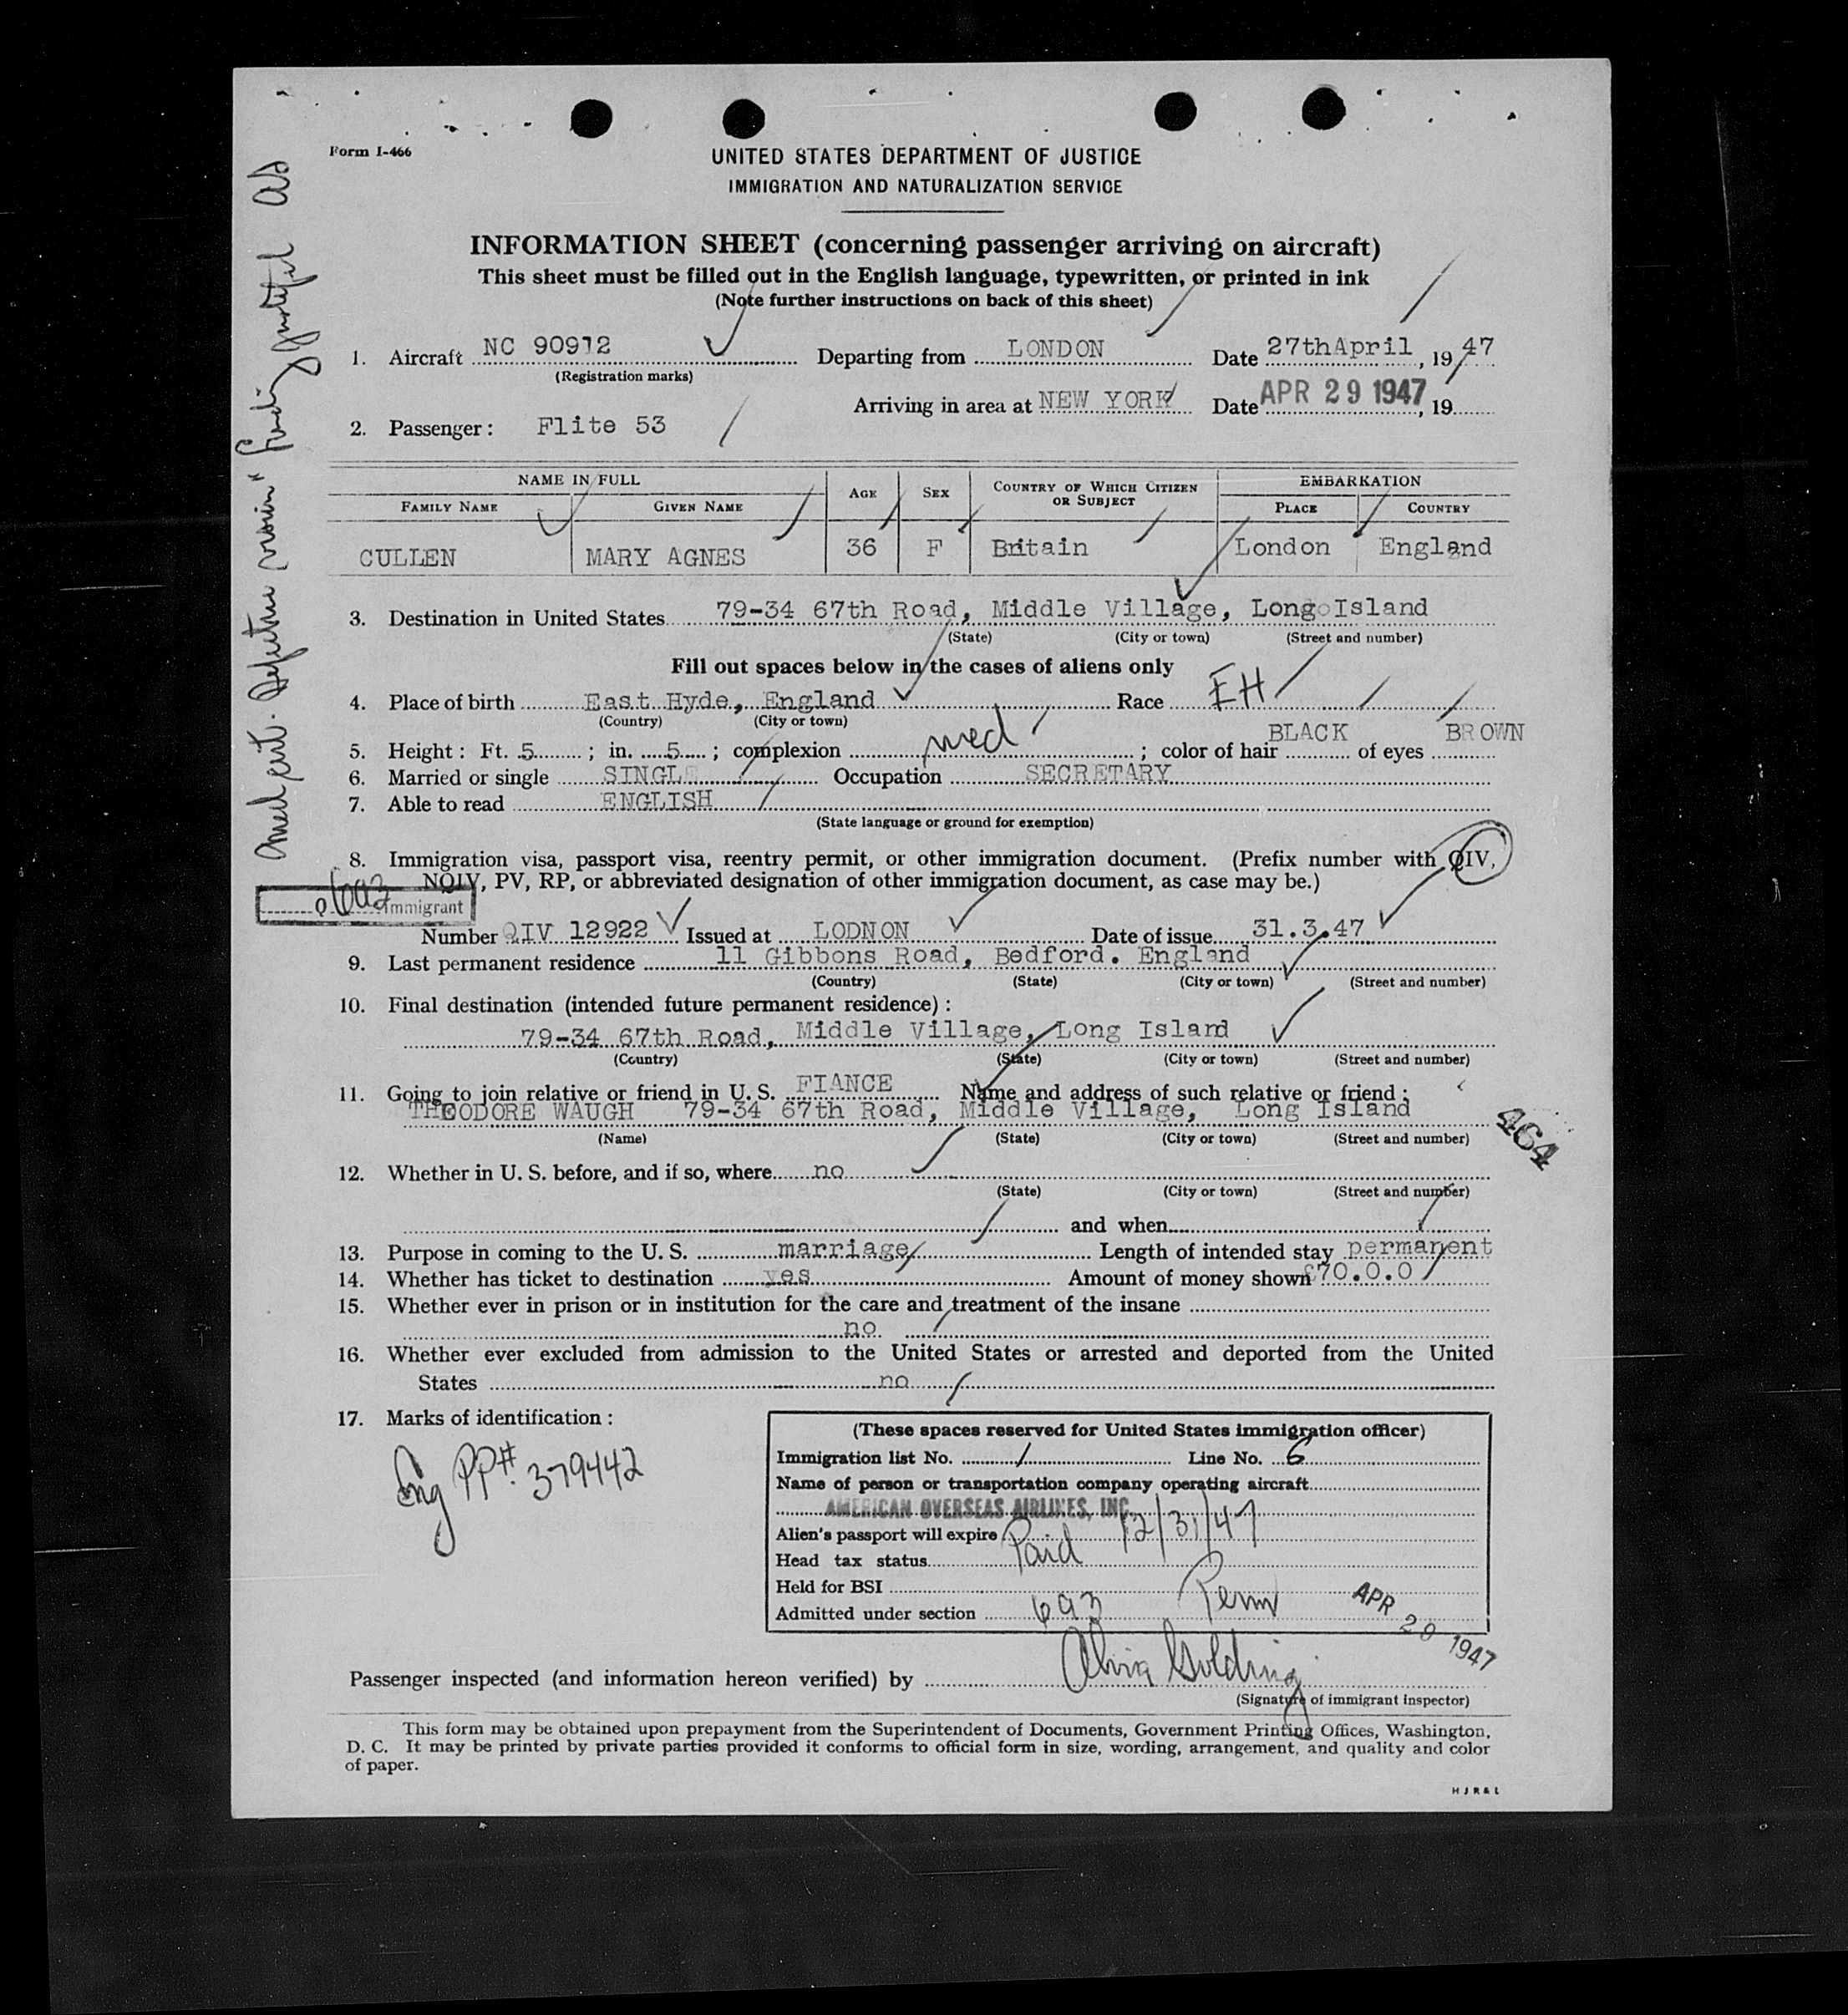 Form I-466
UNITED STATES DEPARTMENT OF JUSTICE
IMMIGRATION AND NATURALIZATION SERVICE
INFORMATION SHEET (concerning passenger arriving on aircraft)
This sheet must be filled out in the English language, typewritten, or printed in ink
(Note further instructions on back of this sheet)
1. Aircraft NC 90912 Departing from LONDON Date 27thApril, 1947
(Registration marks)
Arriving in area at NEW YORK Date APR 29 1947, 19
2. Passenger: Flite 53
NAME IN FULL AGE SEX COUNTRY OF WHICH CITIZEN OR SUBJECT EMBARKATION
FAMILY NAME GIVEN NAME PLACE COUNTRY
CULLEN MARY AGNES 36 F Britain London England
3. Destination in United States 79-34 67th Road, Middle Village, Long Island
(State) (City or town) (Street and number)
Fill out spaces below in the cases of aliens only
4. Place of birth East Hyde, England Race EH
(Country) (City or town)
5. Height: Ft. 5; in. 5; complexion med; color of hair BLACK of eyes BROWN
6. Married or single SINGLE Occupation SECRETARY
7. Able to read ENGLISH
(State language or ground for exemption)
8. Immigration visa, passport visa, reentry permit, or other immigration document. (Prefix number with QIV,
NQIV, PV, RP, or abbreviated designation of other immigration document, as case may be.)
Q 6a3 Immigrant
Number QIV 12922 Issued at LODNON Date of issue 31.3.47
9. Last permanent residence 11 Gibbons Road, Bedford. England
(Country) (State) (City or town) (Street and number)
10. Final destination (intended future permanent residence):
79-34 67th Road, Middle Village, Long Island
(Country) (State) (City or town) (Street and number)
11. Going to join relative or friend in U. S. FIANCE Name and address of such relative or friend:
THEODORE WAUGH 79-34 67th Road, Middle Village, Long Island
(Name) (State) (City or town) (Street and number)
464
12. Whether in U. S. before, and if so, where no
(State) (City or town) (Street and number)
and when
13. Purpose in coming to the U. S. marriage Length of intended stay permanent
14. Whether has ticket to destination yes Amount of money shown £70.0.0
15. Whether ever in prison or in institution for the care and treatment of the insane
no
16. Whether ever excluded from admission to the United States or arrested and deported from the United
States no
17. Marks of identification:
Eng PP# 379442
(These spaces reserved for United States immigration officer)
Immigration list No. 1 Line No. 6
Name of person or transportation company operating aircraft
AMERICAN OVERSEAS AIRLINES, INC.
Alien's passport will expire 12/31/47
Head tax status Paid
Held for BSI
Admitted under section 6a3 Perm APR 29 1947
Passenger inspected (and information hereon verified) by Golding
(Signature of immigrant inspector)
This form may be obtained upon prepayment from the Superintendent of Documents, Government Printing Offices, Washington,
D. C. It may be printed by private parties provided it conforms to official form in size, wording, arrangement, and quality and color
of paper.
H J R & L
Med cert. Defective vision
as